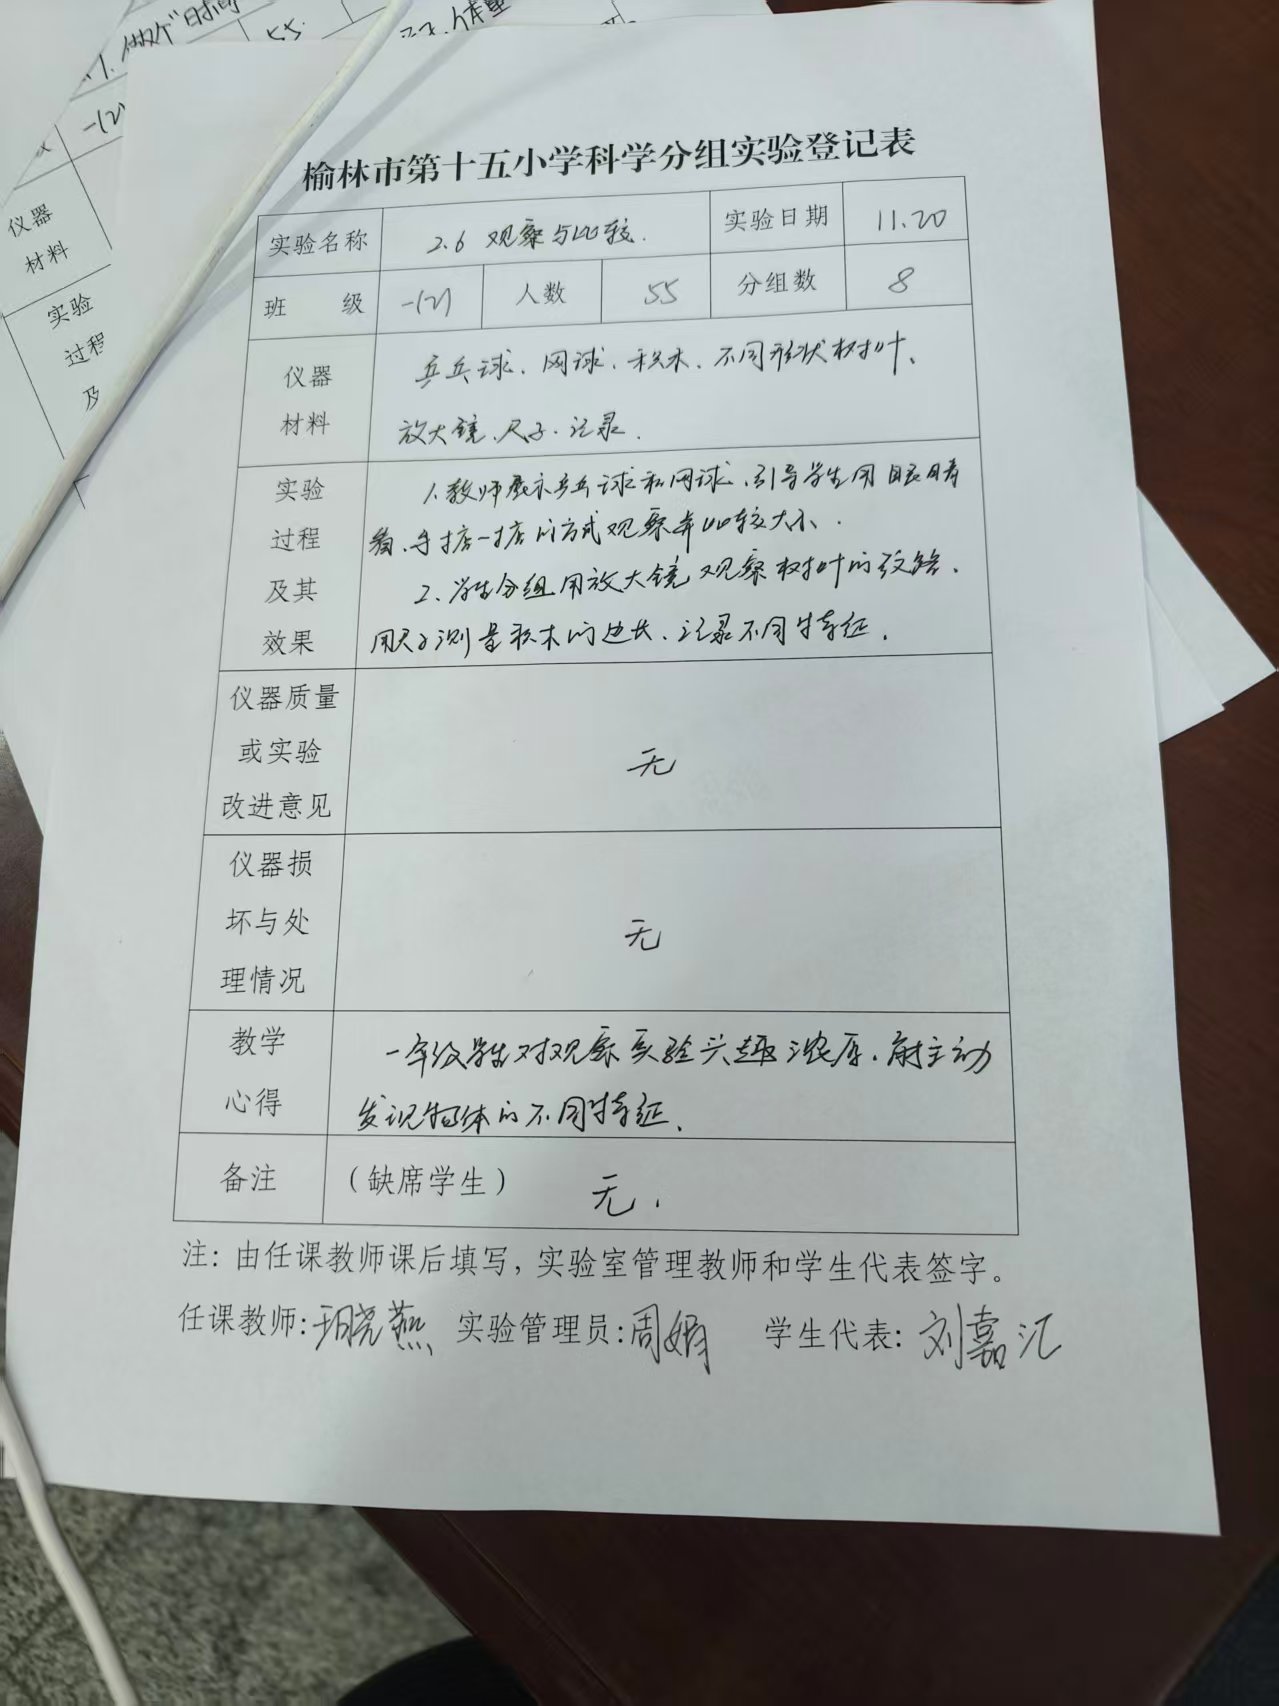 做个"时间
55.
一(2)
仪器
材料
实验
过程
及
榆林市第十五小学科学分组实验登记表
实验名称 2.6 观察与比较. 实验日期 11.20
班 级 一(2) 人数 55 分组数 8
仪器 乒乓球、网球、积木、不同形状树叶、
材料 放大镜、尺子、记录.
实验 1、教师展示乒乓球和网球、引导学生用眼睛
过程 看、手掂一掂的方式观察并比较大小.
及其 2、学生分组用放大镜观察树叶的纹路、
效果 用尺子测量积木的边长、记录不同特征.
仪器质量
或实验 无
改进意见
仪器损
坏与处 无
理情况
教学 一年级学生对观察实验兴趣浓厚、能主动
心得 发现物体的不同特征.
备注 (缺席学生) 无.
注: 由任课教师课后填写, 实验室管理教师和学生代表签字。
任课教师: 晓燕 实验管理员: 周娟 学生代表: 刘嘉汇